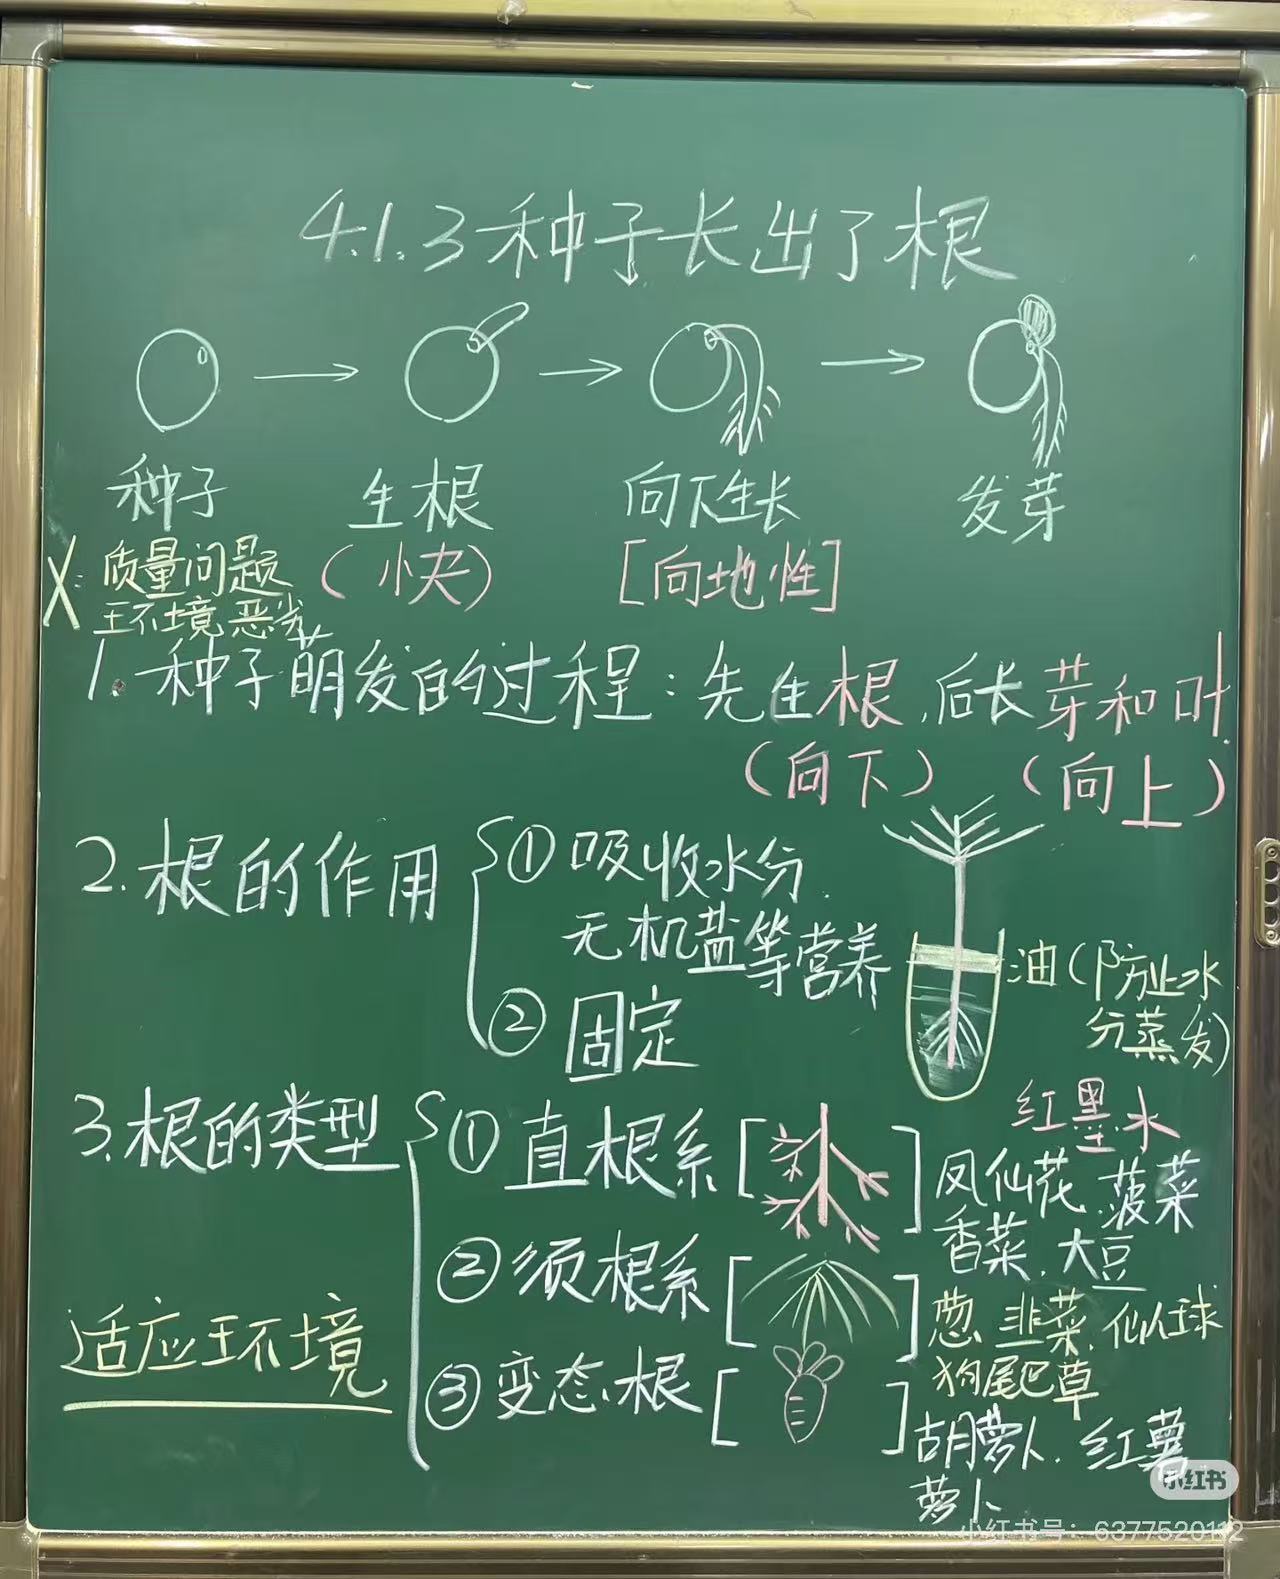 4.1.3 种子长出了根
种子 → 生根 → 向下生长 → 发芽
X: 质量问题 (小夹) [向地性]
环境恶劣
1. 种子萌发的过程：先生根，后长芽和叶
(向下) (向上)
2. 根的作用 ① 吸收水分.
无机盐等营养
② 固定
油(防止水
分蒸发)
红墨水
3. 根的类型 ① 直根系 [ ] 凤仙花.菠菜
香菜.大豆
② 须根系 [ ] 葱.韭菜.仙人球
狗尾巴草
适应环境
③ 变态根 [ ] 胡萝卜.红薯
萝卜
小红书
小红书号：6377520112